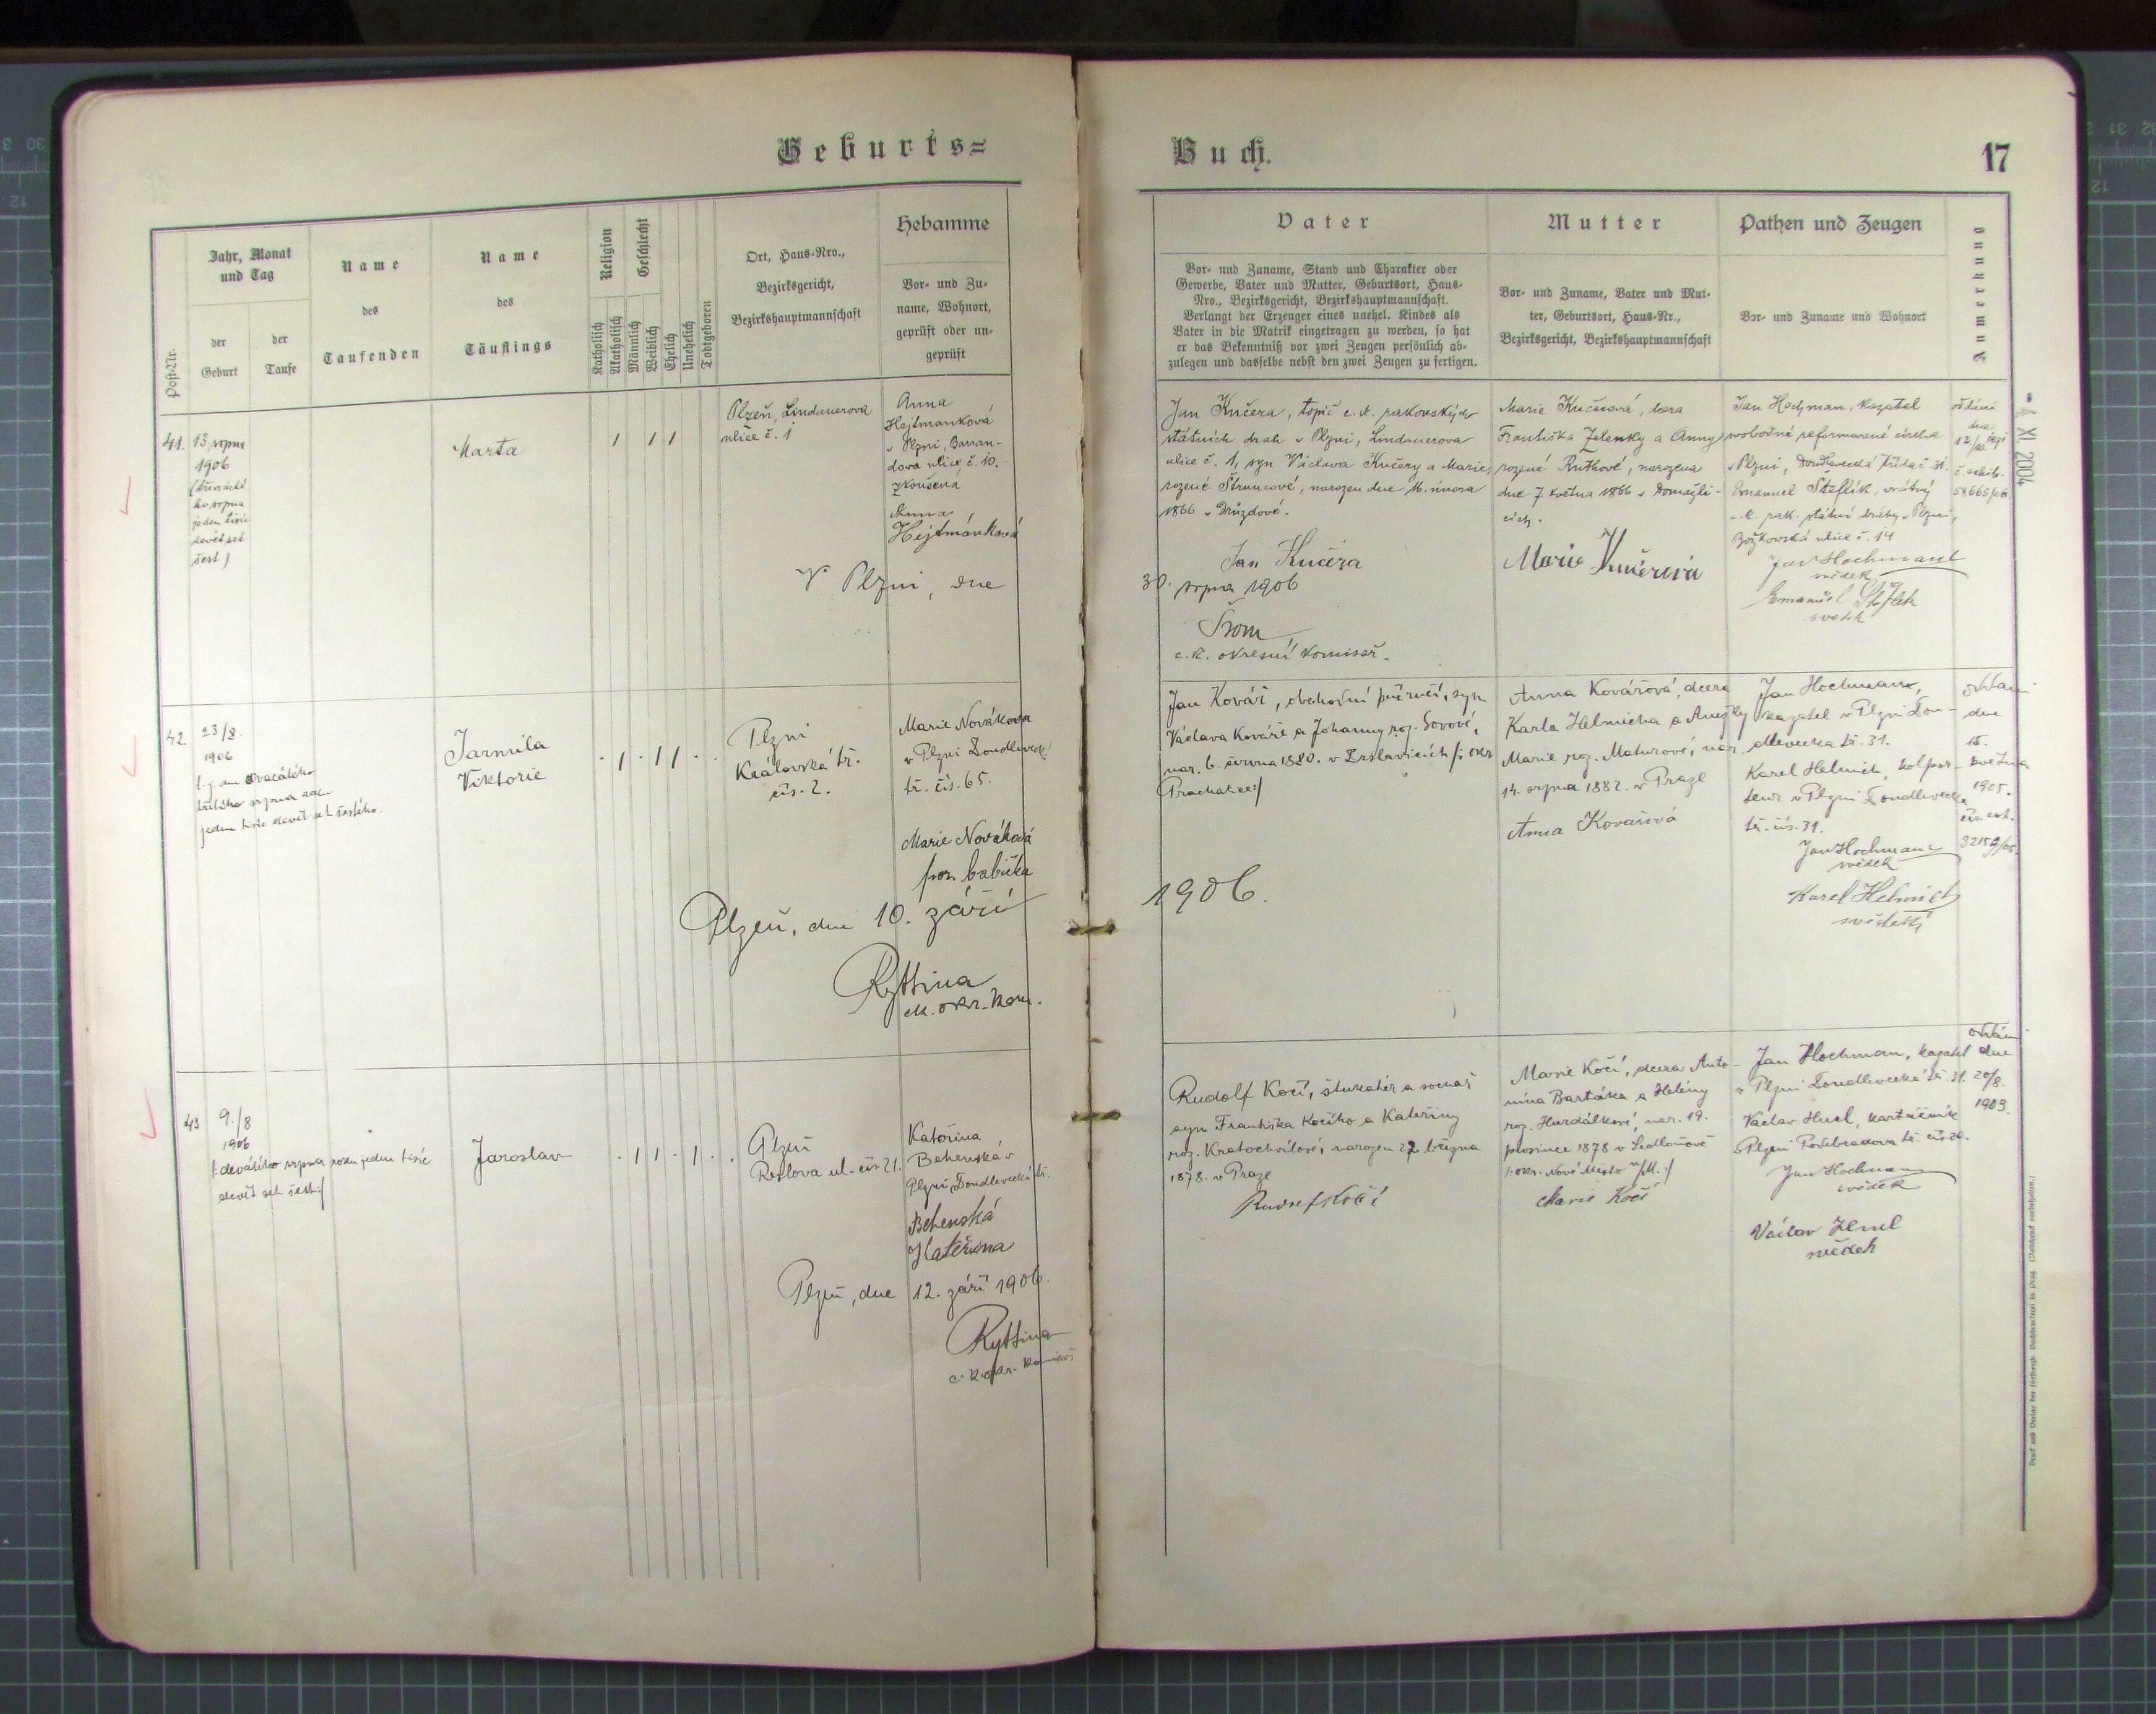 Geburts=
Jahr, Monat
und Tag
Name
des
Taufenden
Name
des
Täuflings
Religion
Geschlecht
Ort, Haus-Nro.,
Bezirksgericht,
Bezirkshauptmannschaft
Hebamme
Vor- und Zu-
name, Wohnort,
geprüft oder un-
geprüft
Post-Nr.
der
Geburt
der
Taufe
Katholisch
Akatholisch
Männlich
Weiblich
Ehelich
Unehelich
Todtgeboren
41.
13 srpna
1906
(třináctého srpna
jeden tisíc
devět set
šest)
Marta
Plzeň, Lindauerova
ulice č. 1
Anna
Hejtmanková
v Plzni, Barran-
dova ulice č. 10.
zkoušená
Anna
Hejtmánková
V Plzni, dne
42.
23/8.
1906
jeden tisíc devět set šestého.
Jarmila
Viktorie
Plzni
Královská tř.
čís. 2.
Marie Nováková
v Plzni Doudlevecká
tř. čís. 65.
Marie Nováková
por. babička
Plzeň, dne 10. září
Ryttina
ck. okr. kom.
43
9./8
1906
/:devátého srpna roku jeden tisíc
devět set šest:/
Jaroslav
Plzeň
Resslova ul. čís 21.
Kateřina
Behenská v
Plzni, Doudlevecká tř.
Behenská
Kateřina
Plzeň, dne 12. září 1906.
Ryttina
c. k. okr. komisař
Buch.
17
Vater
Vor- und Zuname, Stand und Charakter oder
Gewerbe, Vater und Mutter, Geburtsort, Haus-
Nro., Bezirksgericht, Bezirkshauptmannschaft.
Verlangt der Erzeuger eines unehel. Kindes als
Vater in die Matrik eingetragen zu werden, so hat
er das Bekenntniß vor zwei Zeugen persönlich ab-
zulegen und dasselbe nebst den zwei Zeugen zu fertigen.
Mutter
Vor- und Zuname, Vater und Mut-
ter, Geburtsort, Haus-Nr.,
Bezirksgericht, Bezirkshauptmannschaft
Pathen und Zeugen
Vor- und Zuname und Wohnort
Anmerkung
Jan Kučera, topič c. k. rakouských
státních drah v Plzni, Lindauerova
ulice č. 1, syn Václava Kučery a Marie,
rozené Štruncové, narozen dne 16. února
1866 v Drůzdově.
Jan Kučera
30. srpna 1906
Šrom
c. k. okresní komisař.
Marie Kučerová, dcera
Františka Zelenky a Anny
rozené Rutkové, narozena
dne 7 května 1866 v Domažli-
cích.
Marie Kučerová
Jan Hochman, kazatel
svobodné reformované církve
v Plzni, Doudlevecká třída č. 31.
Emanuel Šteflík, vrátný
c. k. rak. státní dráhy v Plzni,
Božkovská ulice č. 14
Jan Hochmann
svědek
Emanuel Šteflík
svědek
oddáni
dne
- 4. XI. 2004
Jan Kovář, obchodní příručí, syn
Václava Kováře a Johanny roz. Sovové,
nar. 6. června 1880. v Zrslavicích /: okr
Prachatce:/
1906.
Anna Kovářová, dcera
Karla Helmicha a Anežky
Marie roz. Maturové, nar.
14. srpna 1882. v Praze
Anna Kovářová
Jan Hochmann,
kazatel v Plzni Dou-
dlevecká tř. 31.
Karel Helmich, kolpor-
teur v Plzni Doudlevecka
tř. čís. 31.
Jan Hochmann
svědek
Karel Helmich
oddáni
dne
18.
května
1905.
Rudolf Kočí, štukatér a sochař
syn Františka Kočího a Kateřiny
roz. Kratochvílové, narozen 27 března
1878. v Praze
Rudolf Kočí
Marie Kočí, dcera Anto-
nína Bartáka a Heleny
roz. Hurdálkové, nar. 19.
prosince 1878 v Sedloňově
/: okr. Nové Město n/M. :/
Marie Kočí
Jan Hochman, kazatel
v Plzni Doudlevecká tř. 31.
Václav Hucl, kartáčník
v Plzni Poděbradova tř. čís. 20.
Jan Hochmann
svědek
Václav Hucl
svědek
oddáni
dne
20/8.
1903.